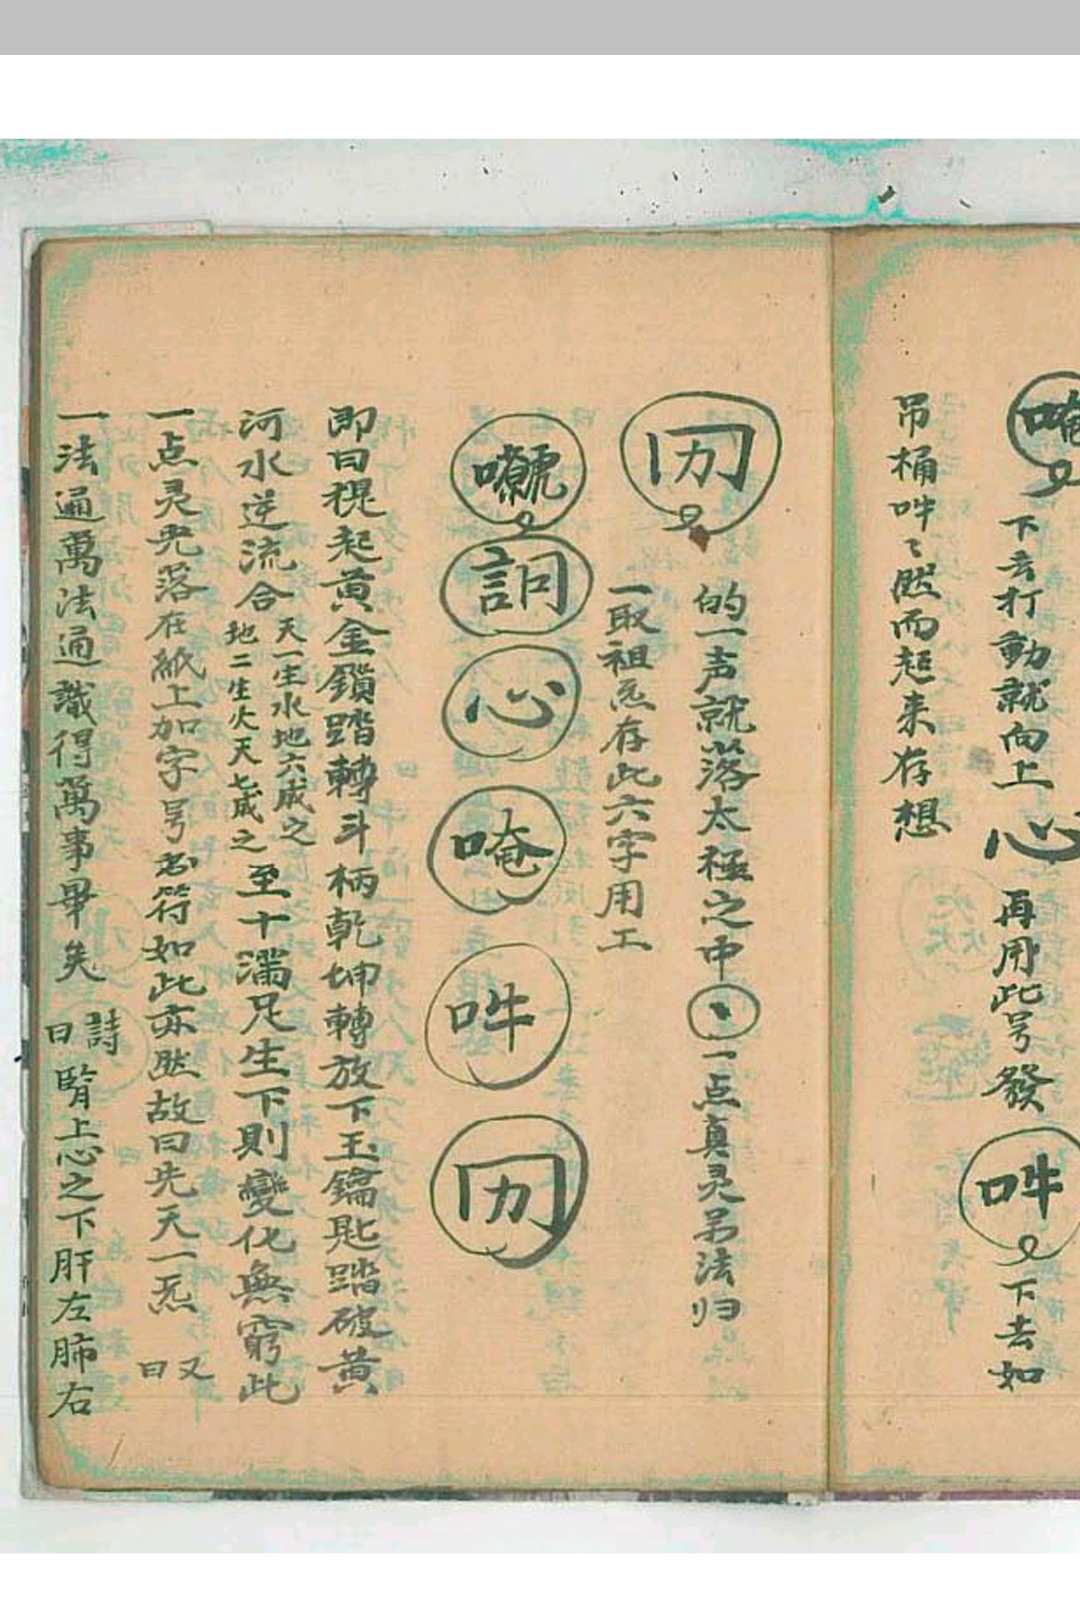 唵 下去打動就向上 心 再用此号發 吽 下去如
吊桶吽吽然而起来存想
的一声就落太極之中 一点真灵吊法归
一取祖炁存此六字用工
䚯 心 唵 吽
即曰提起黄金鎖踏轉斗柄乾坤轉放下玉鑰匙踏破黄
河水逆流合 天一生水地六成之 地二生火天七成之 至十滿足生下則變化無窮此
一点灵光落在紙上加字号為符如此亦然故曰先天一炁 又曰
一法通萬法通識得萬事畢矣 詩曰 腎上心之下肝左肺右